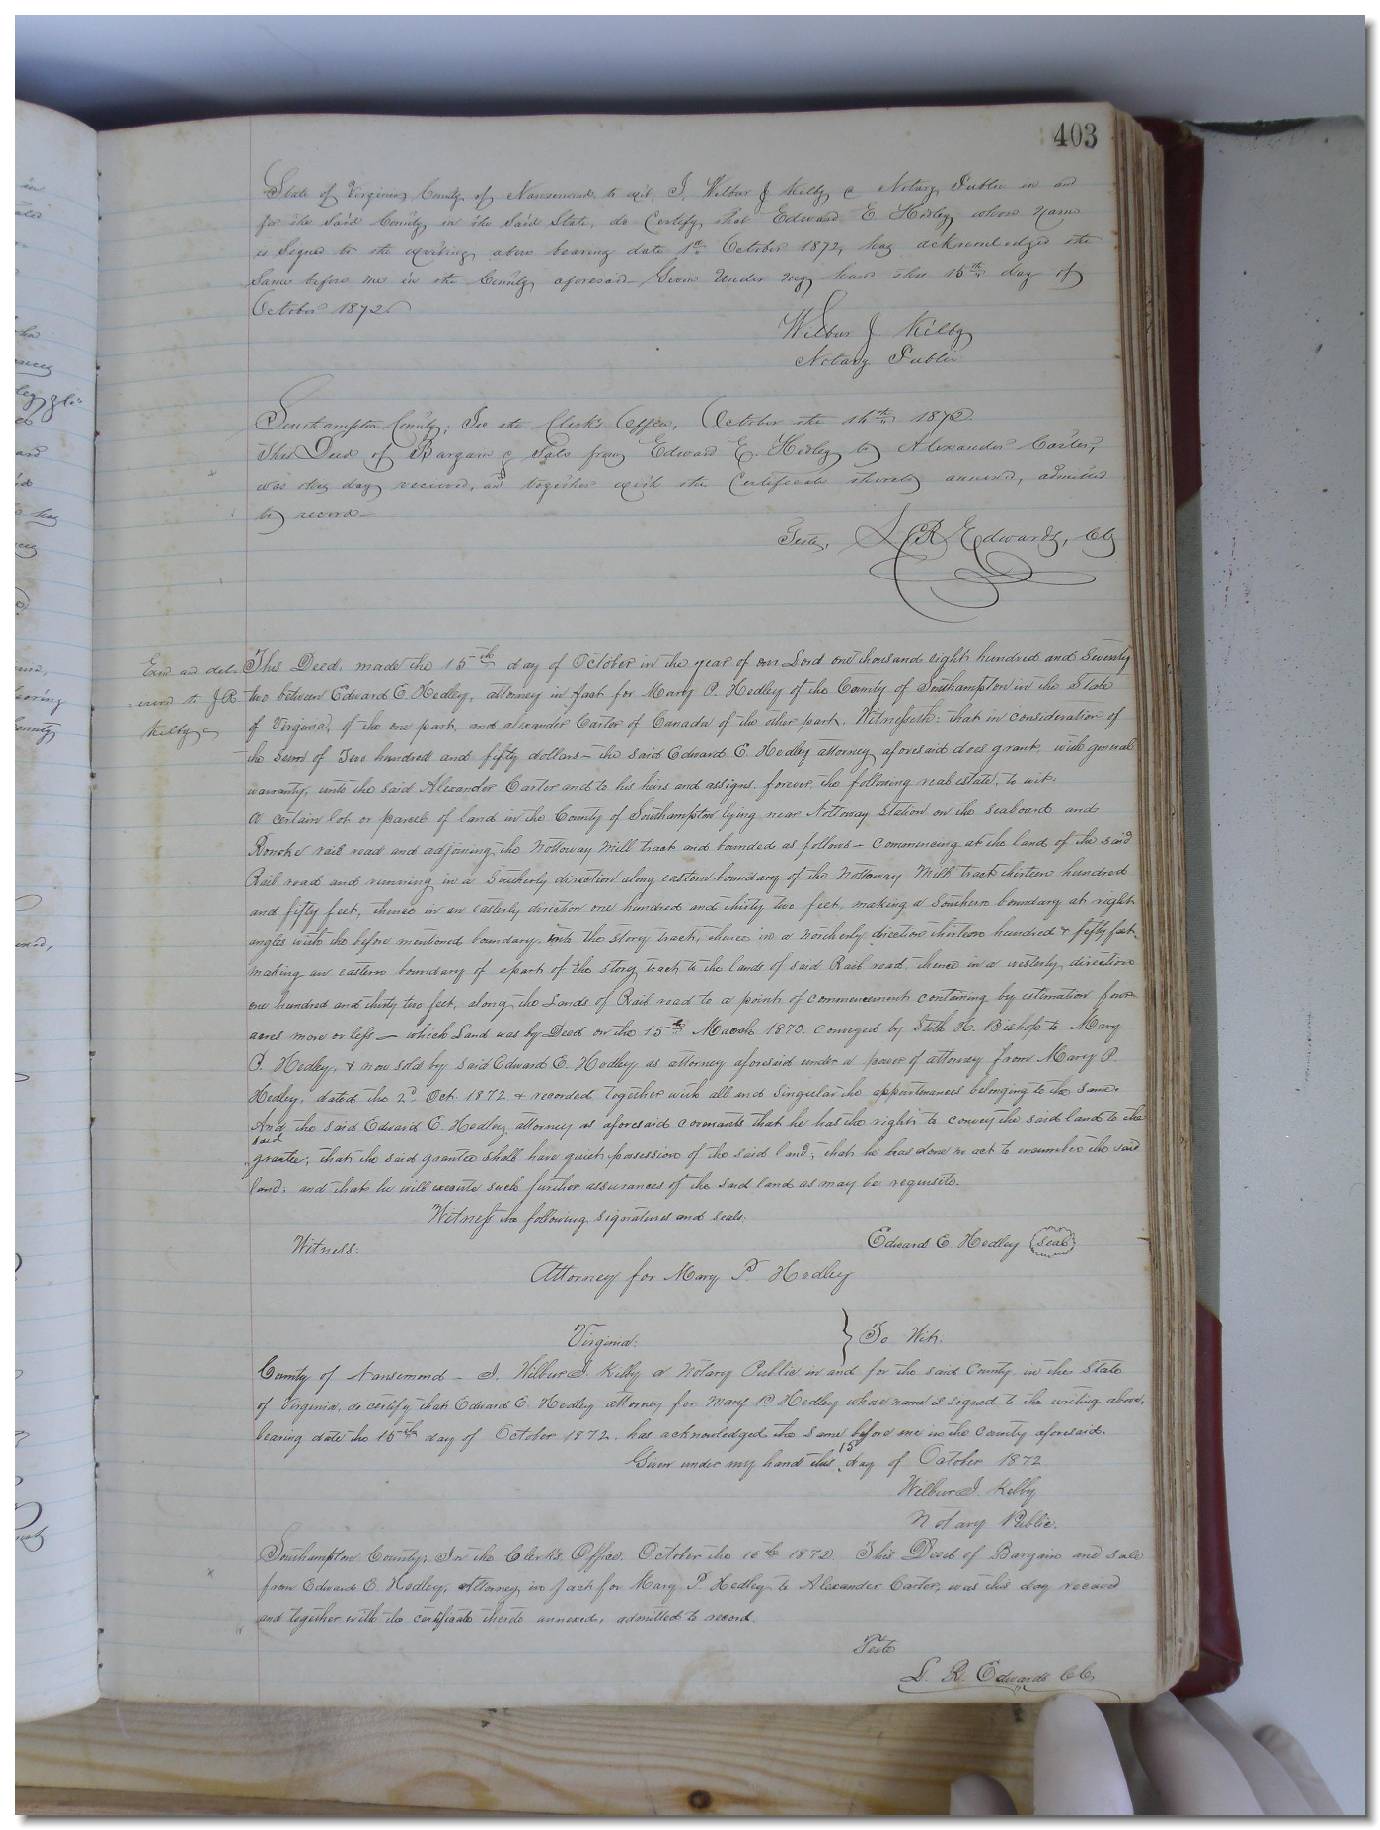 403
State of Virginia County of Nansemond to wit I, Wilbur J Kilby a Notary Public in and
for the said County in the said State, do Certify, that Edward E Hedley whose name
is Signed to the writing above bearing date 1st October 1872, has acknowledged the
Same before me in the County aforesaid Given under my hand this 15th day of
October 1872
Wilbur J Kilby
Notary Public
Southampton County; In the Clerk's Office, October the 16th 1872
This Deed of Bargain & Sale from Edward E. Hedley to Alexander Carter,
was this day received, and together with the Certificate thereto annexed, admitted
to record
Teste, L R Edwards, CC
Exd and del-
ivered to J.R
Kilby
This Deed, made the 15th day of October in the year of our Lord one thousand eight hundred and Seventy
two between Edward E. Hedley, attorney in fact for Mary P. Hedley of the County of Southampton in the State
of Virginia, of the one part, and alexander Carter of Canada of the other part, Witnesseth: that in consideration of
the Sum of Two hundred and fifty dollars – the said Edward E. Hedley attorney aforesaid does grant, with general
warranty, unto the said Alexander Carter and to his heirs and assigns forever, the following real estate, to wit:
A certain lot or parcel of land in the County of Southampton lying near Nottoway Station on the seaboard and
Ronoke rail road and adjoining the Nottoway Mill tract and bounded as follows – Commencing at the land of the said
Rail road and running in a Southerly direction along eastern boundary of the Nottoway Mill tract thirteen hundred
and fifty feet, thence in an easterly direction one hundred and thirty two feet, making a Southern boundary at right
angles with the before mentioned boundary. into the story tract, thence in a northerly direction thirteen hundred & fifty feet.
making an eastern boundary of part of the story tract to the lands of said Rail road, thence in a westerly direction
one hundred and thirty two feet, along the Lands of Rail road to a point of commencement containing by estimation four
acres more or less – which Land was by Deed on the 15th March 1870. conveyed by Seth H. Bishop to Mary
P. Hedley, & now sold by said Edward E. Hedley, as attorney aforesaid under a power of attorney from Mary P.
Hedley, dated the 2d Oct. 1872 & recorded together with all and Singular the appurtenances belonging to the same.
And the said Edward E. Hedley attorney as aforesaid covenants that he has the right to convey the said land to the
said
grantee; that the said grantee shall have quiet possession of the said land; that he has done no act to encumber the said
land; and that he will execute such further assurances of the said land as may be requisite.
Witness the following signatures and seals:
Witness: Edward E. Hedley (seal)
Attorney for Mary P Hedley
Virginia: } To Wit:
County of Nansemond – I, Wilbur J. Kilby a Notary Public in and for the said County, in the State
of Virginia, do certify that Edward E. Hedley attorney for Mary P Hedley whose name is signed to the writing above,
bearing date the 15th day of October 1872, has acknowledged the same before me in the County aforesaid.
Given under my hand this 15 day of October 1872
Wilbur J. Kilby
Notary Public.
Southampton County; In the Clerk's Office. October the 16th 1872. This Deed of Bargain and sale
from Edward E. Hedley, Attorney in fact for Mary P. Hedley to Alexander Carter, was this day received
and together with the certificate thereto annexed, admitted to record.
Teste
L. R. Edwards CC.